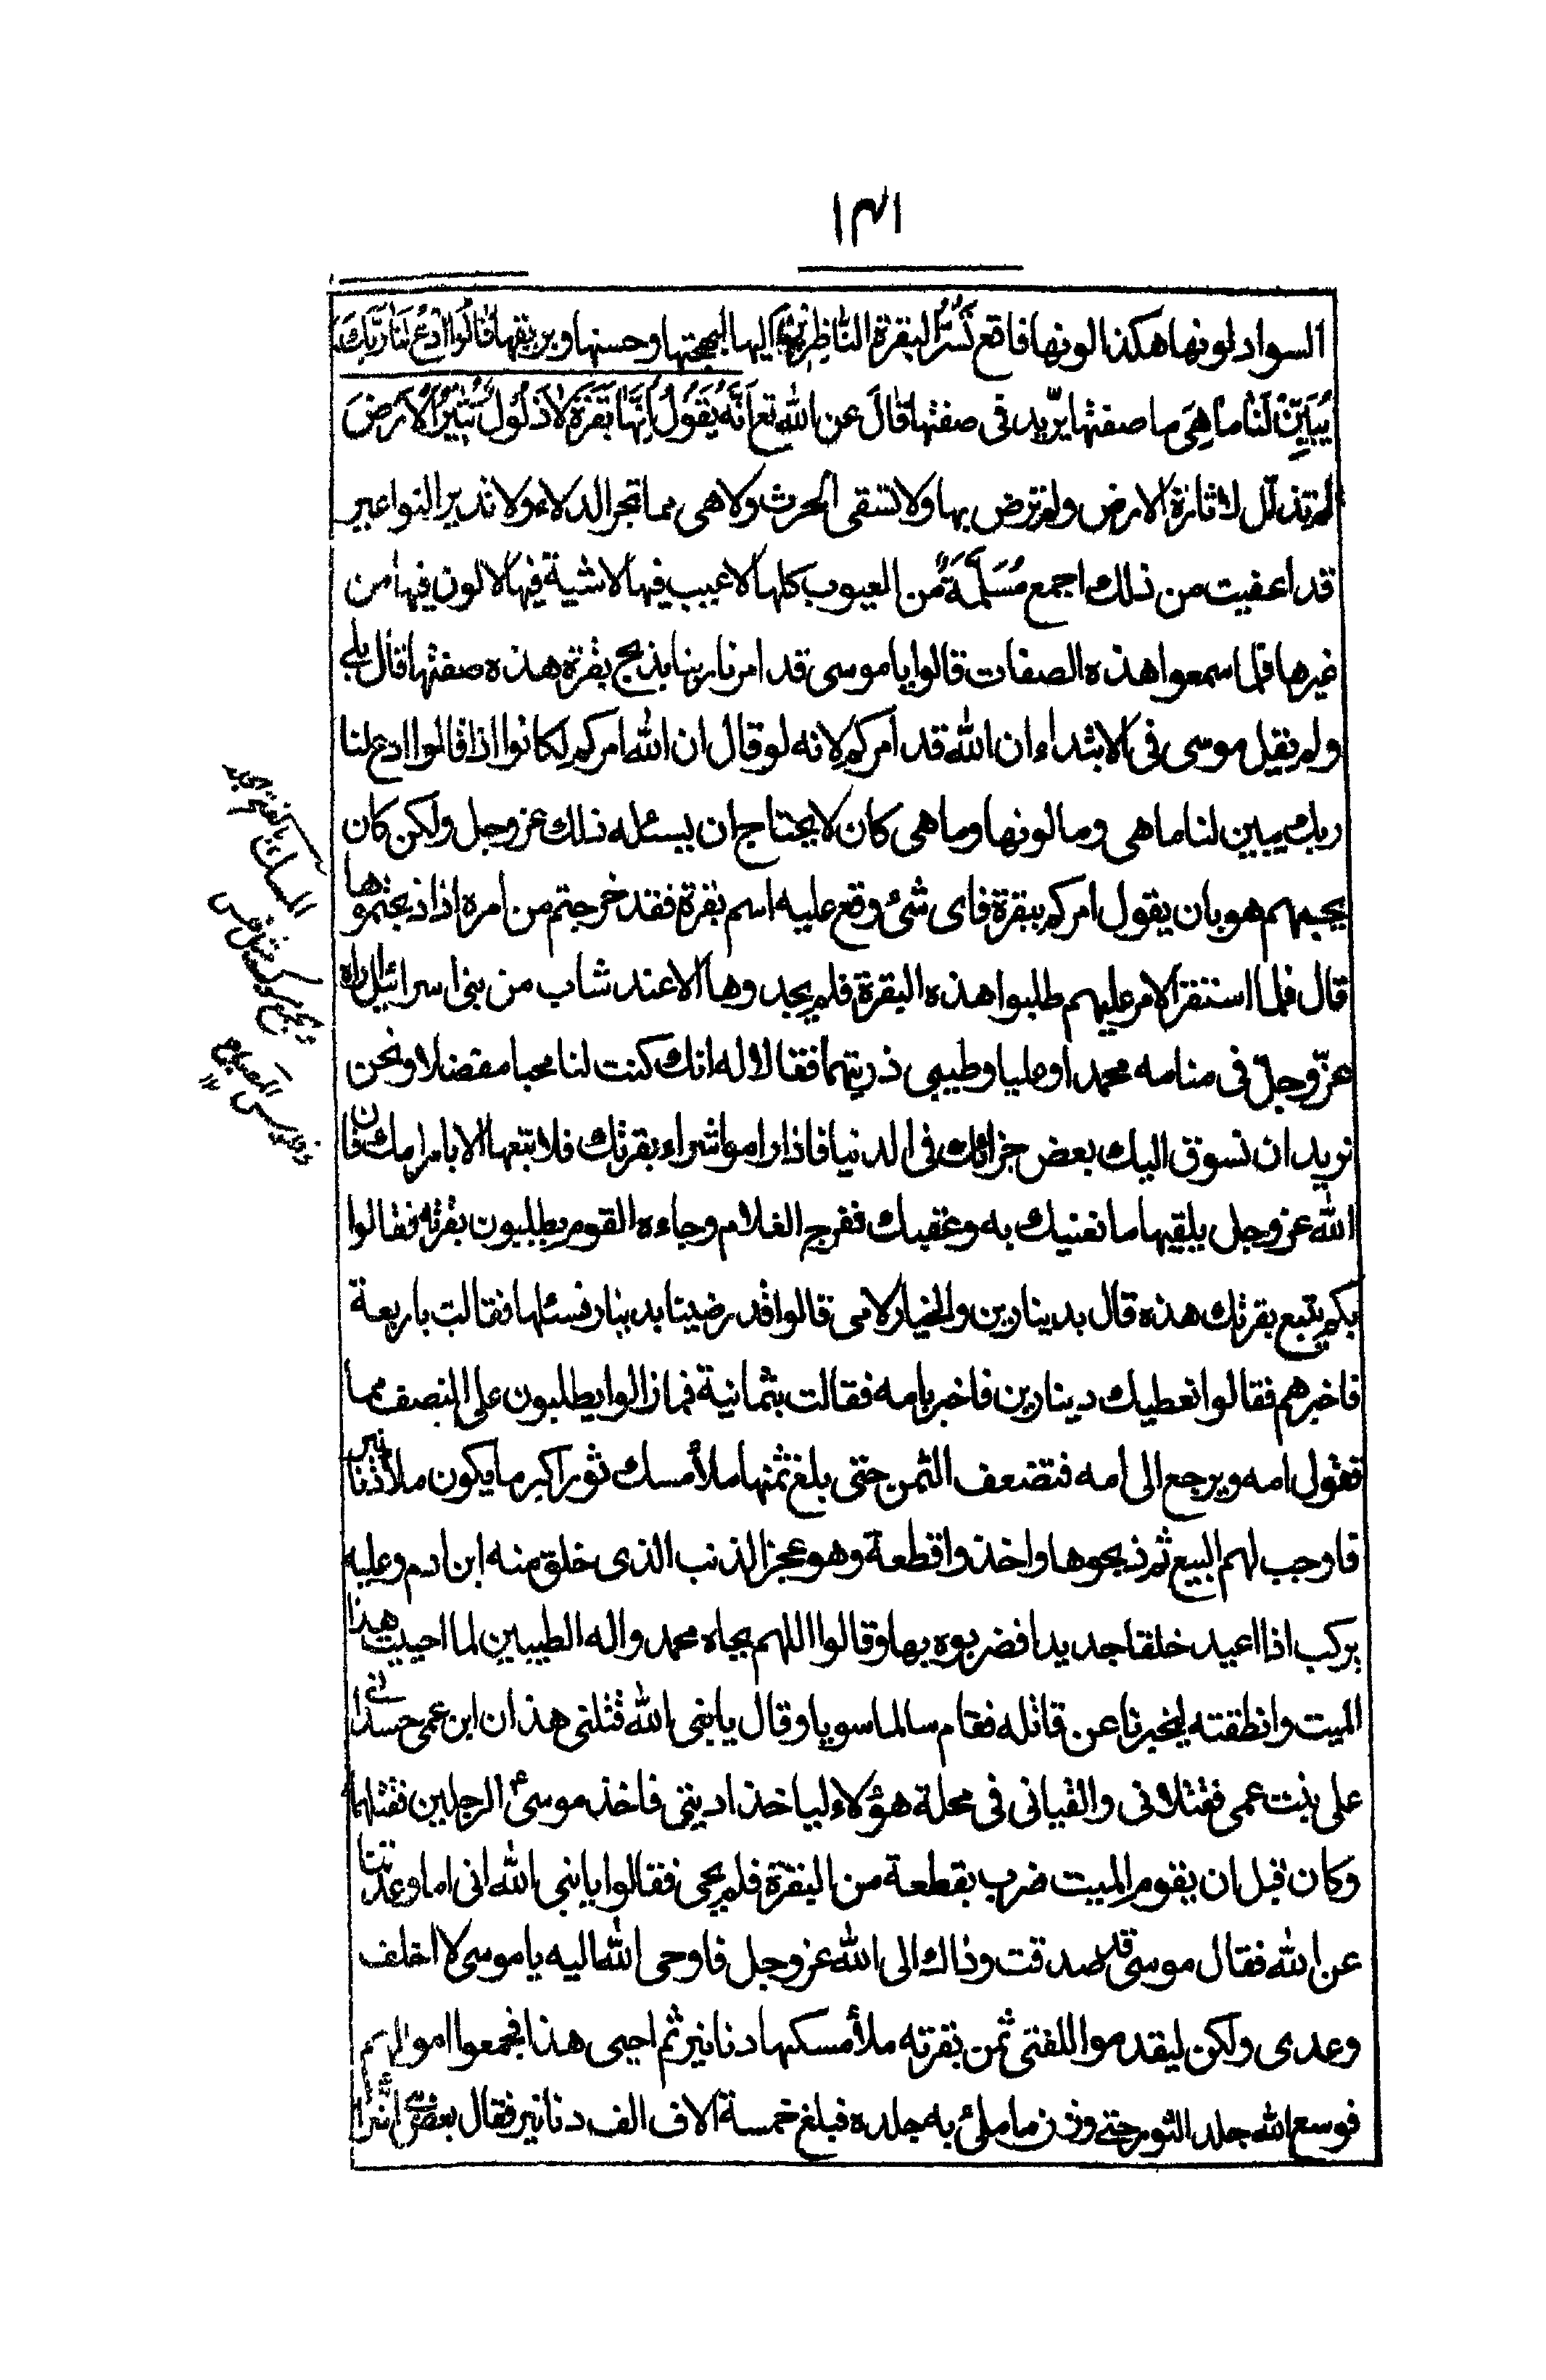 ١٣١
السواد لونها هكذا لونها فاقع تَسُرُّ البقرة النَّاظِرِينَ اليها لبهجتها وحسنها وبريقها قَالُوا ادْعُ لَنَا رَبَّكَ
يُبَيِّنْ لَنَا مَا هِيَ ما صفتها يزيد في صفتها قَالَ عن الله تع اِنَّهُ يَقُولُ اِنَّهَا بَقَرَةٌ لَا ذَلُولٌ تُثِيرُ الْاَرْضَ
لم تذلّل لاثارة الارض ولم ترض بها ولا تسقى الحرث ولا هى مما تجر الدلاء ولا تدير النواعير
قد اعفيت من ذلك اجمع مُسَلَّمَةٌ من العيوب كلها لا عيب فيها لا شية فيها لا لون فيها من
غيرها فلما سمعوا هذه الصفات قالوا يا موسى قد امرنا ربنا بذبح بقرة هذه صفتها قال بلى
ولم يقل موسى فى الابتداء ان الله قد امركم لانه لو قال ان الله امركم لكانوا اذا قالوا ادع لنا
ربك يبين لنا ما هى وما لونها وما هى كان لا يحتاج ان يسئله ذلك عز وجل ولكن كان
يجيبهم هو بان يقول امركم ببقرة فاى شئ وقع عليه اسم بقرة فقد خرجتم من امره اذا ذبحتموها
قال فلما استقر الامر عليهم طلبوا هذه البقرة فلم يجدوها الا عند شاب من بنى اسرائيل اراه
عزّ وجلّ فى منامه محمدا وعليا وطيبى ذريتهما فقالا له انك كنت لنا محبا مفضلا ونحن
نريد ان نسوق اليك بعض جزائك فى الدنيا فاذا راموا شراء بقرتك فلا تبعها الا بامر امك فان
الله عز وجل يلقيها ما تغنيك به وعقبك ففرح الغلام وجاءه القوم يطلبون بقرته فقالوا
بكم تبيع بقرتك هذه قال بدينارين والخيار لامى قالوا قد رضينا بدينار فسئلها فقالت باربعة
فاخبرهم فقالوا نعطيك دينارين فاخبر بامه فقالت بثمانية فما زالوا يطلبون على النصف مما
فتقول امه ويرجع الى امه فتضعف الثمن حتى بلغ ثمنها ملأ مسك ثور اكبر ما يكون ملأ دنانير
فاوجب لهم البيع ثم ذبحوها واخذوا قطعة وهو عجز الذنب الذى خلق منه ابن ادم وعليه
يركب اذا اعيد خلقا جديدا فضربوه بها وقالوا اللهم بجاه محمد واله الطيبين لما احييت هذا
الميت وانطقته ليخبرنا عن قاتله فقام سالما سويا وقال يا نبى الله قتلنى هذان ابن عمى حسدانى
على بنت عمى فقتلانى والقيانى فى محلة هؤلاء ليأخذا ديتى فاخذ موسى الرجلين فقتلهما
وكان قبل ان يقوم الميت ضرب بقطعة من البقرة فلم يحى فقالوا يا نبى الله انى اما وعدتنا
عن الله فقال موسى قد صدقت وذاك الى الله عز وجل فاوحى الله اليه يا موسى لا اخلف
وعدى ولكن ليقدموا للفتى ثمن بقرته ملأ مسكها دنانير ثم احيى هذا فجمعوا اموالهم
فوسع الله جلد الثور حتى وزن ما ملئ به جلده فبلغ خمسة الاف الف دنانير فقال بعض
المسك بالفتح الجلد